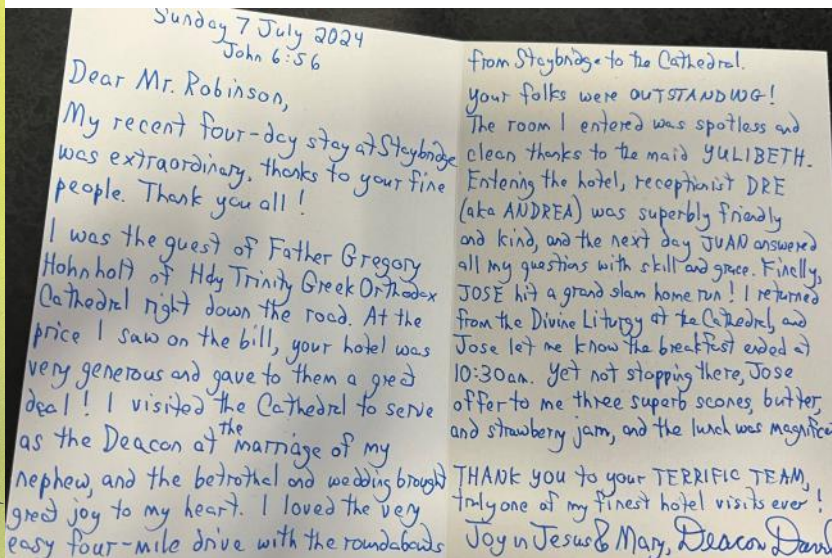 Sunday 7 July 2024
John 6:56
Dear Mr. Robinson,
My recent four-day stay at Staybridge
was extraordinary, thanks to your fine
people. Thank you all!
I was the guest of Father Gregory
Hohnholt of Holy Trinity Greek Orthodox
Cathedral right down the road. At the
price I saw on the bill, your hotel was
very generous and gave to them a great
deal! I visited the Cathedral to serve
as the Deacon at the marriage of my
nephew, and the betrothal and wedding brought
great joy to my heart. I loved the very
easy four-mile drive with the roundabouts
from Staybridge to the Cathedral.
your folks were OUTSTANDING!
The room I entered was spotless and
clean thanks to the maid YULIBETH.
Entering the hotel, receptionist DRE
(aka ANDREA) was superbly friendly
and kind, and the next day JUAN answered
all my questions with skill and grace. Finally,
JOSE hit a grand slam home run! I returned
from the Divine Liturgy at the Cathedral, and
Jose let me know the breakfast ended at
10:30am. Yet not stopping there, Jose
offer to me three superb scones, butter,
and strawberry jam, and the lunch was
THANK YOU to your TERRIFIC TEAM,
truly one of my finest hotel visits ever!
Joy in Jesus & Mary, Deacon